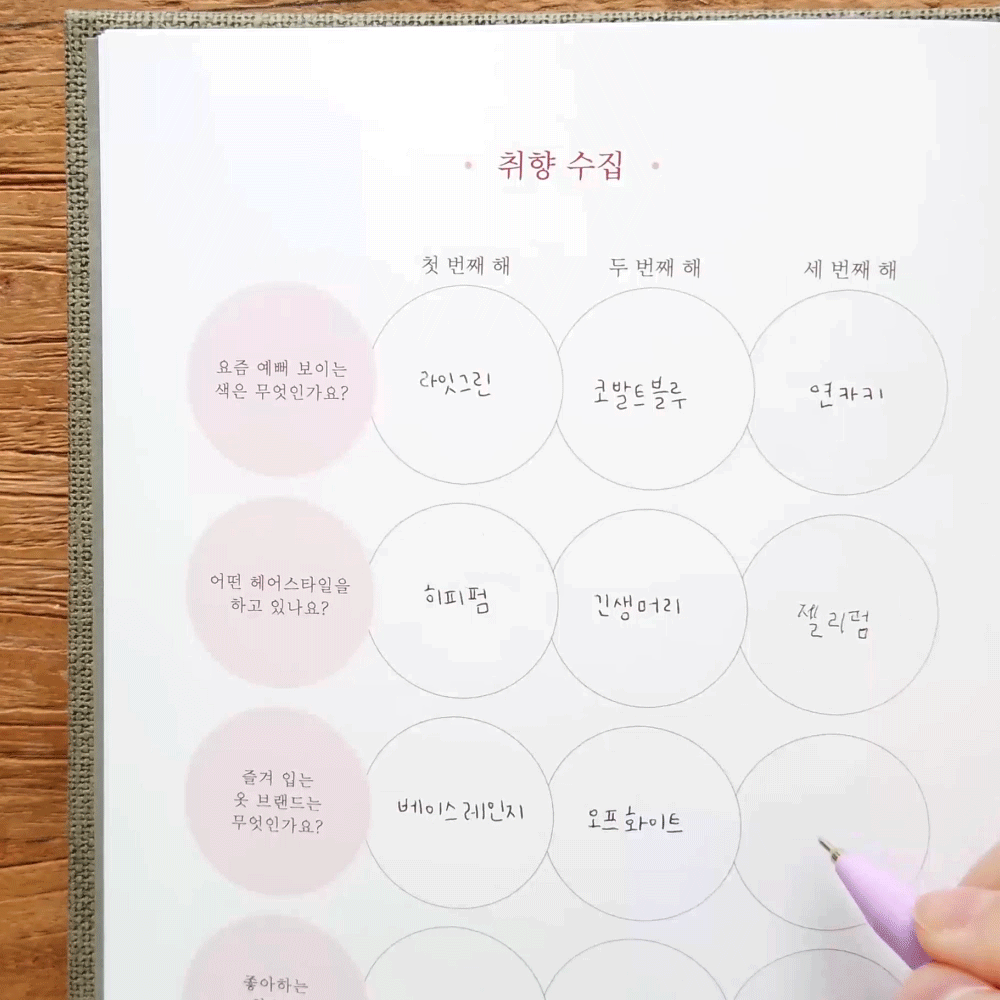 취향 수집
첫 번째 해 두 번째 해 세 번째 해
요즘 예뻐 보이는
색은 무엇인가요?
라잇그린 코발트블루 연카키
어떤 헤어스타일을
하고 있나요?
히피펌 긴생머리 젤리펌
즐겨 입는
옷 브랜드는
무엇인가요?
베이스레인지 오프화이트
좋아하는